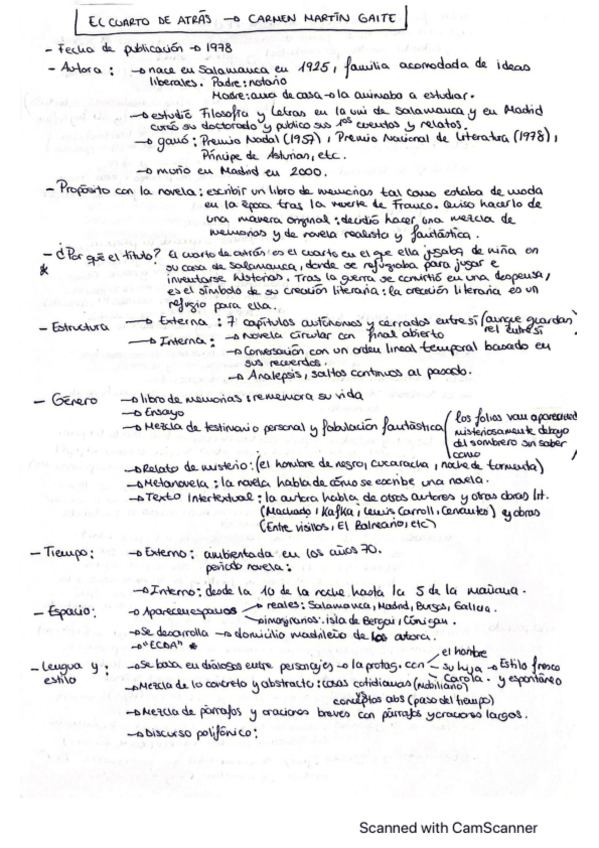 EL CUARTO DE ATRÁS → CARMEN MARTÍN GAITE
- Fecha de publicación → 1978
- Autora: → nace en Salamanca en 1925, familia acomodada de ideas
liberales. Padre: notario
Madre: ama de casa → la animaba a estudiar.
→ estudió Filosofía y Letras en la uni de Salamanca y en Madrid
cursó su doctorado y publico sus 1os cuentos y relatos.
→ ganó: Premio Nadal (1957), Premio Nacional de Literatura (1978),
Príncipe de Asturias, etc.
→ murió en Madrid en 2000.
- Propósito con la novela: escribir un libro de memorias tal como estaba de moda
en la época tras la muerte de Franco. Quiso hacerlo de
una manera original: decidió hacer una mezcla de
memorias y de novela realista y fantástica.
- ¿Por qué el título? El cuarto de atrás es el cuarto en el que ella jugaba de niña en
* su casa de Salamanca, donde se refugiaba para jugar e
inventarse historias. Tras la guerra se convirtió en una despensa,
es el símbolo de su creación literaria: la creación literaria es un
refugio para ella.
- Estructura → Externa: 7 capítulos autónomos y cerrados entre sí (aunque guardan
rel entre sí
→ Interna: → Novela circular con final abierto
→ Conversación con un orden lineal temporal basado en
sus recuerdos.
→ Analepsis, saltos continuos al pasado.
- Género → libro de memorias: rememora su vida
→ Ensayo
→ Mezcla de testimonio personal y fabulación fantástica (los folios van apareciendo
misteriosamente debajo
del sombrero sin saber
como
→ Relato de misterio: (el hombre de negro, cucaracha, noche de tormenta)
→ Metanovela: la novela habla de cómo se escribe una novela.
→ Texto Intertextual: la autora habla de otros autores y otras obras lit.
(Machado, Kafka, Lewis Carroll, Cervantes) y obras
(Entre visillos, El Balneario, etc)
- Tiempo: → Externo: ambientada en los años 70.
periodo novela:
→ Interno: desde la 10 de la noche hasta la 5 de la mañana.
- Espacio: → Aparecen espacios → reales: Salamanca, Madrid, Burgos, Galicia.
→ imaginarios: isla de Bergai, Cúnigan.
→ Se desarrolla → domicilio madrileño de la autora.
→ "ECDA" *
- Lengua y estilo: → Se basa en diálogos entre personajes → la protag. con el hombre
su hija → Estilo fresco
Carola. y espontáneo
→ Mezcla de lo concreto y abstracto: cosas cotidianas (mobiliario)
conceptos abs (paso del tiempo)
→ Mezcla de párrafos y oraciones breves con párrafos y oraciones largos.
→ Discurso polifónico:
Scanned with CamScanner